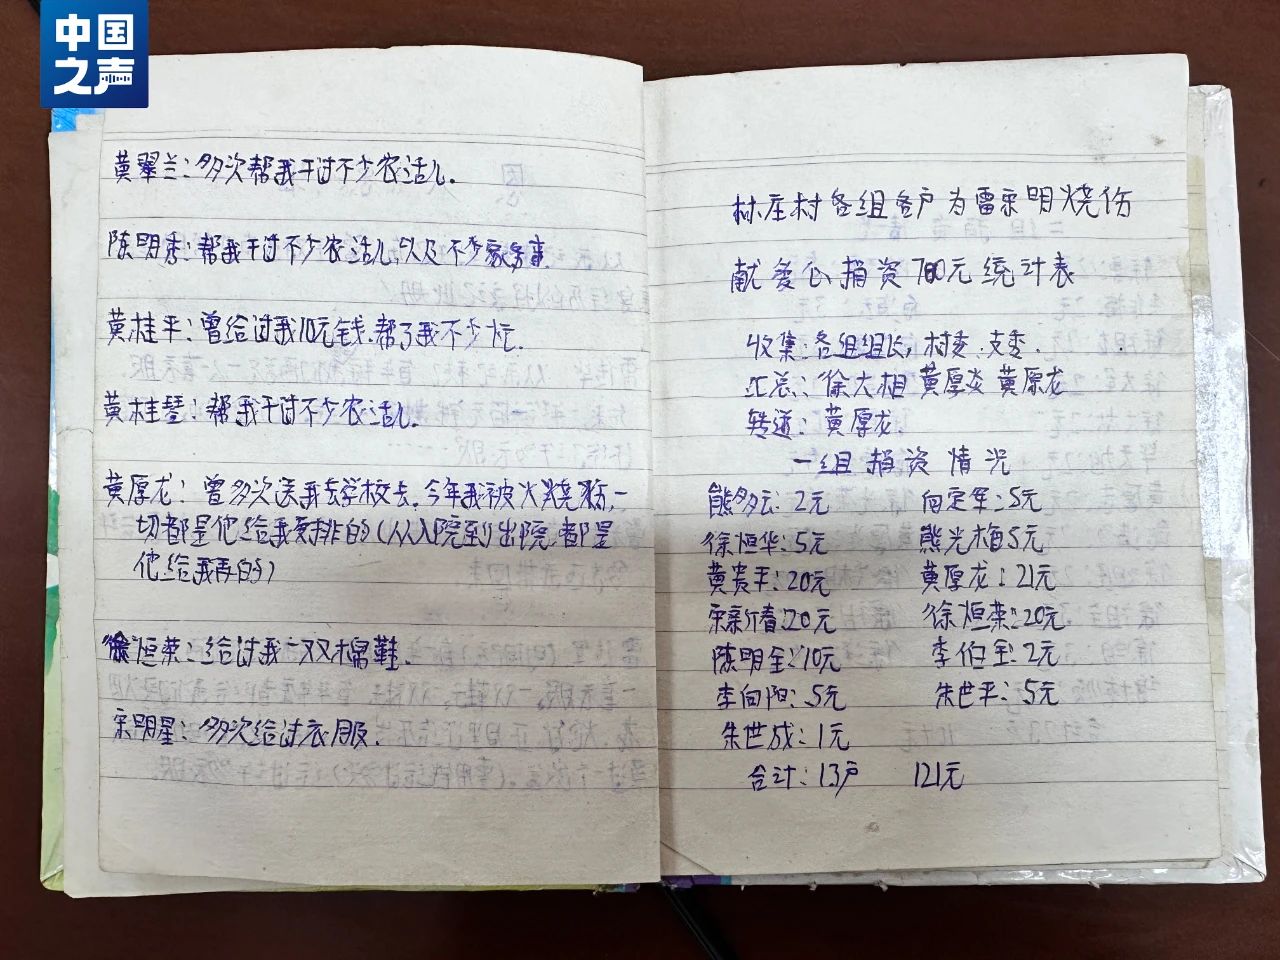 中国
之声
黄翠兰：多次帮我干过不少农活儿.
陈明秀：帮我干过不少农活儿,以及不少家务事.
黄桂平：曾给过我10元钱.帮了我不少忙.
黄桂琴：帮我干过不少农活儿.
黄厚龙：曾多次送我去学校去.今年我被火烧伤,一
切都是他给我安排的(从入院到出院,都是
他给我弄的)
徐恒荣：给过我一双棉鞋.
宋明星：多次给过衣服.
林庄村各组各户为雷宗明烧伤
献爱心捐资700元统计表
收集：各组组长,村委.支委.
汇总：徐大相 黄厚炎 黄厚龙
转送：黄厚龙.
一组捐资情况
熊多云：2元 向定军：5元
徐恒华：5元 熊光梅5元
黄贵平：20元 黄厚龙：21元
宋新春：20元 徐恒荣：20元
陈明全：10元 李伯全：2元
李向阳：5元 朱世平：5元
朱世成：1元
合计：13户 121元